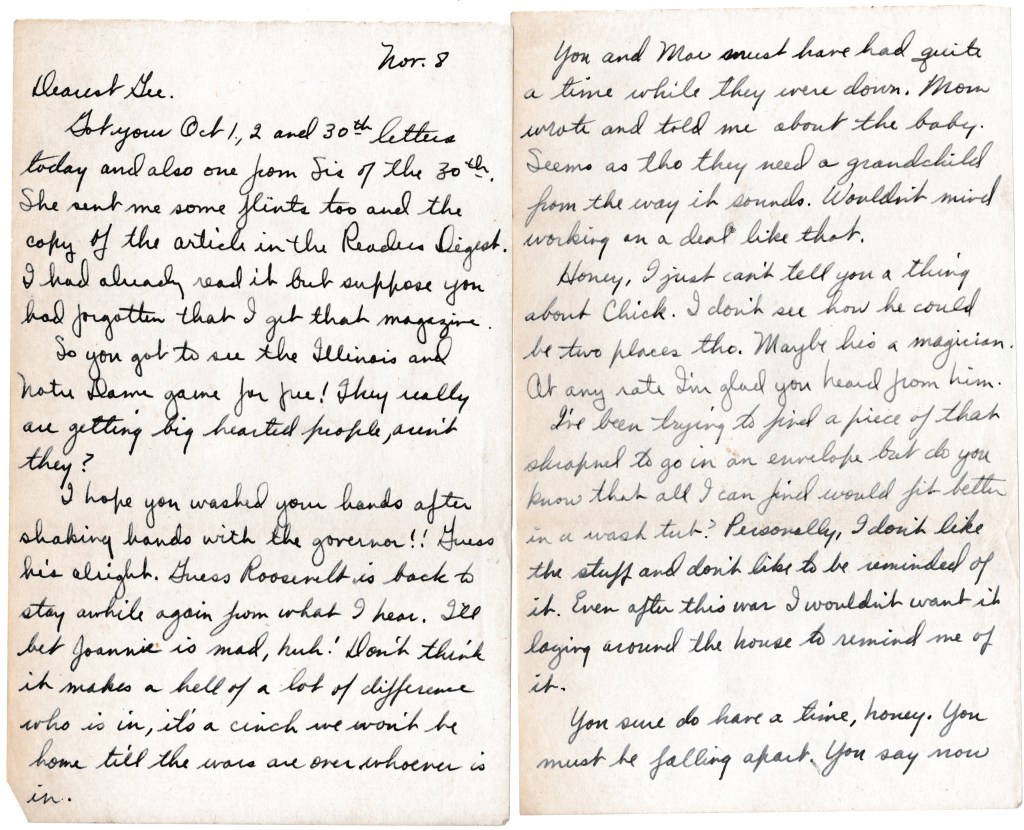 Nov. 8
Dearest Gee.
Got your Oct 1, 2 and 30th letters
today and also one from Sis of the 30th.
She sent me some flints too and the
copy of the article in the Readers Digest.
I had already read it but suppose you
had forgotten that I get that magazine.
So you got to see the Illinois and
Notre Dame game for free! They really
are getting big hearted people, aren't
they?
I hope you washed your hands after
shaking hands with the governor!! Guess
he's alright. Guess Roosevelt is back to
stay awhile again from what I hear. I'll
bet Joannie is mad, huh! Don't think
it makes a hell of a lot of difference
who is in, it's a cinch we won't be
home till the wars are over whoever is
in.
You and Mae must have had quite
a time while they were down. Mom
wrote and told me about the baby.
Seems as tho they need a grandchild
from the way it sounds. Wouldn't mind
working on a deal like that.
Honey, I just can't tell you a thing
about Chick. I don't see how he could
be two places tho. Maybe he's a magician.
At any rate I'm glad you heard from him.
I've been trying to find a piece of that
shrapnel to go in an envelope but do you
know that all I can find would fit better
in a wash tub? Personally, I don't like
the stuff and don't like to be reminded of
it. Even after this war I wouldn't want it
laying around the house to remind me of
it.
You sure do have a time, honey. You
must be falling apart. You say now